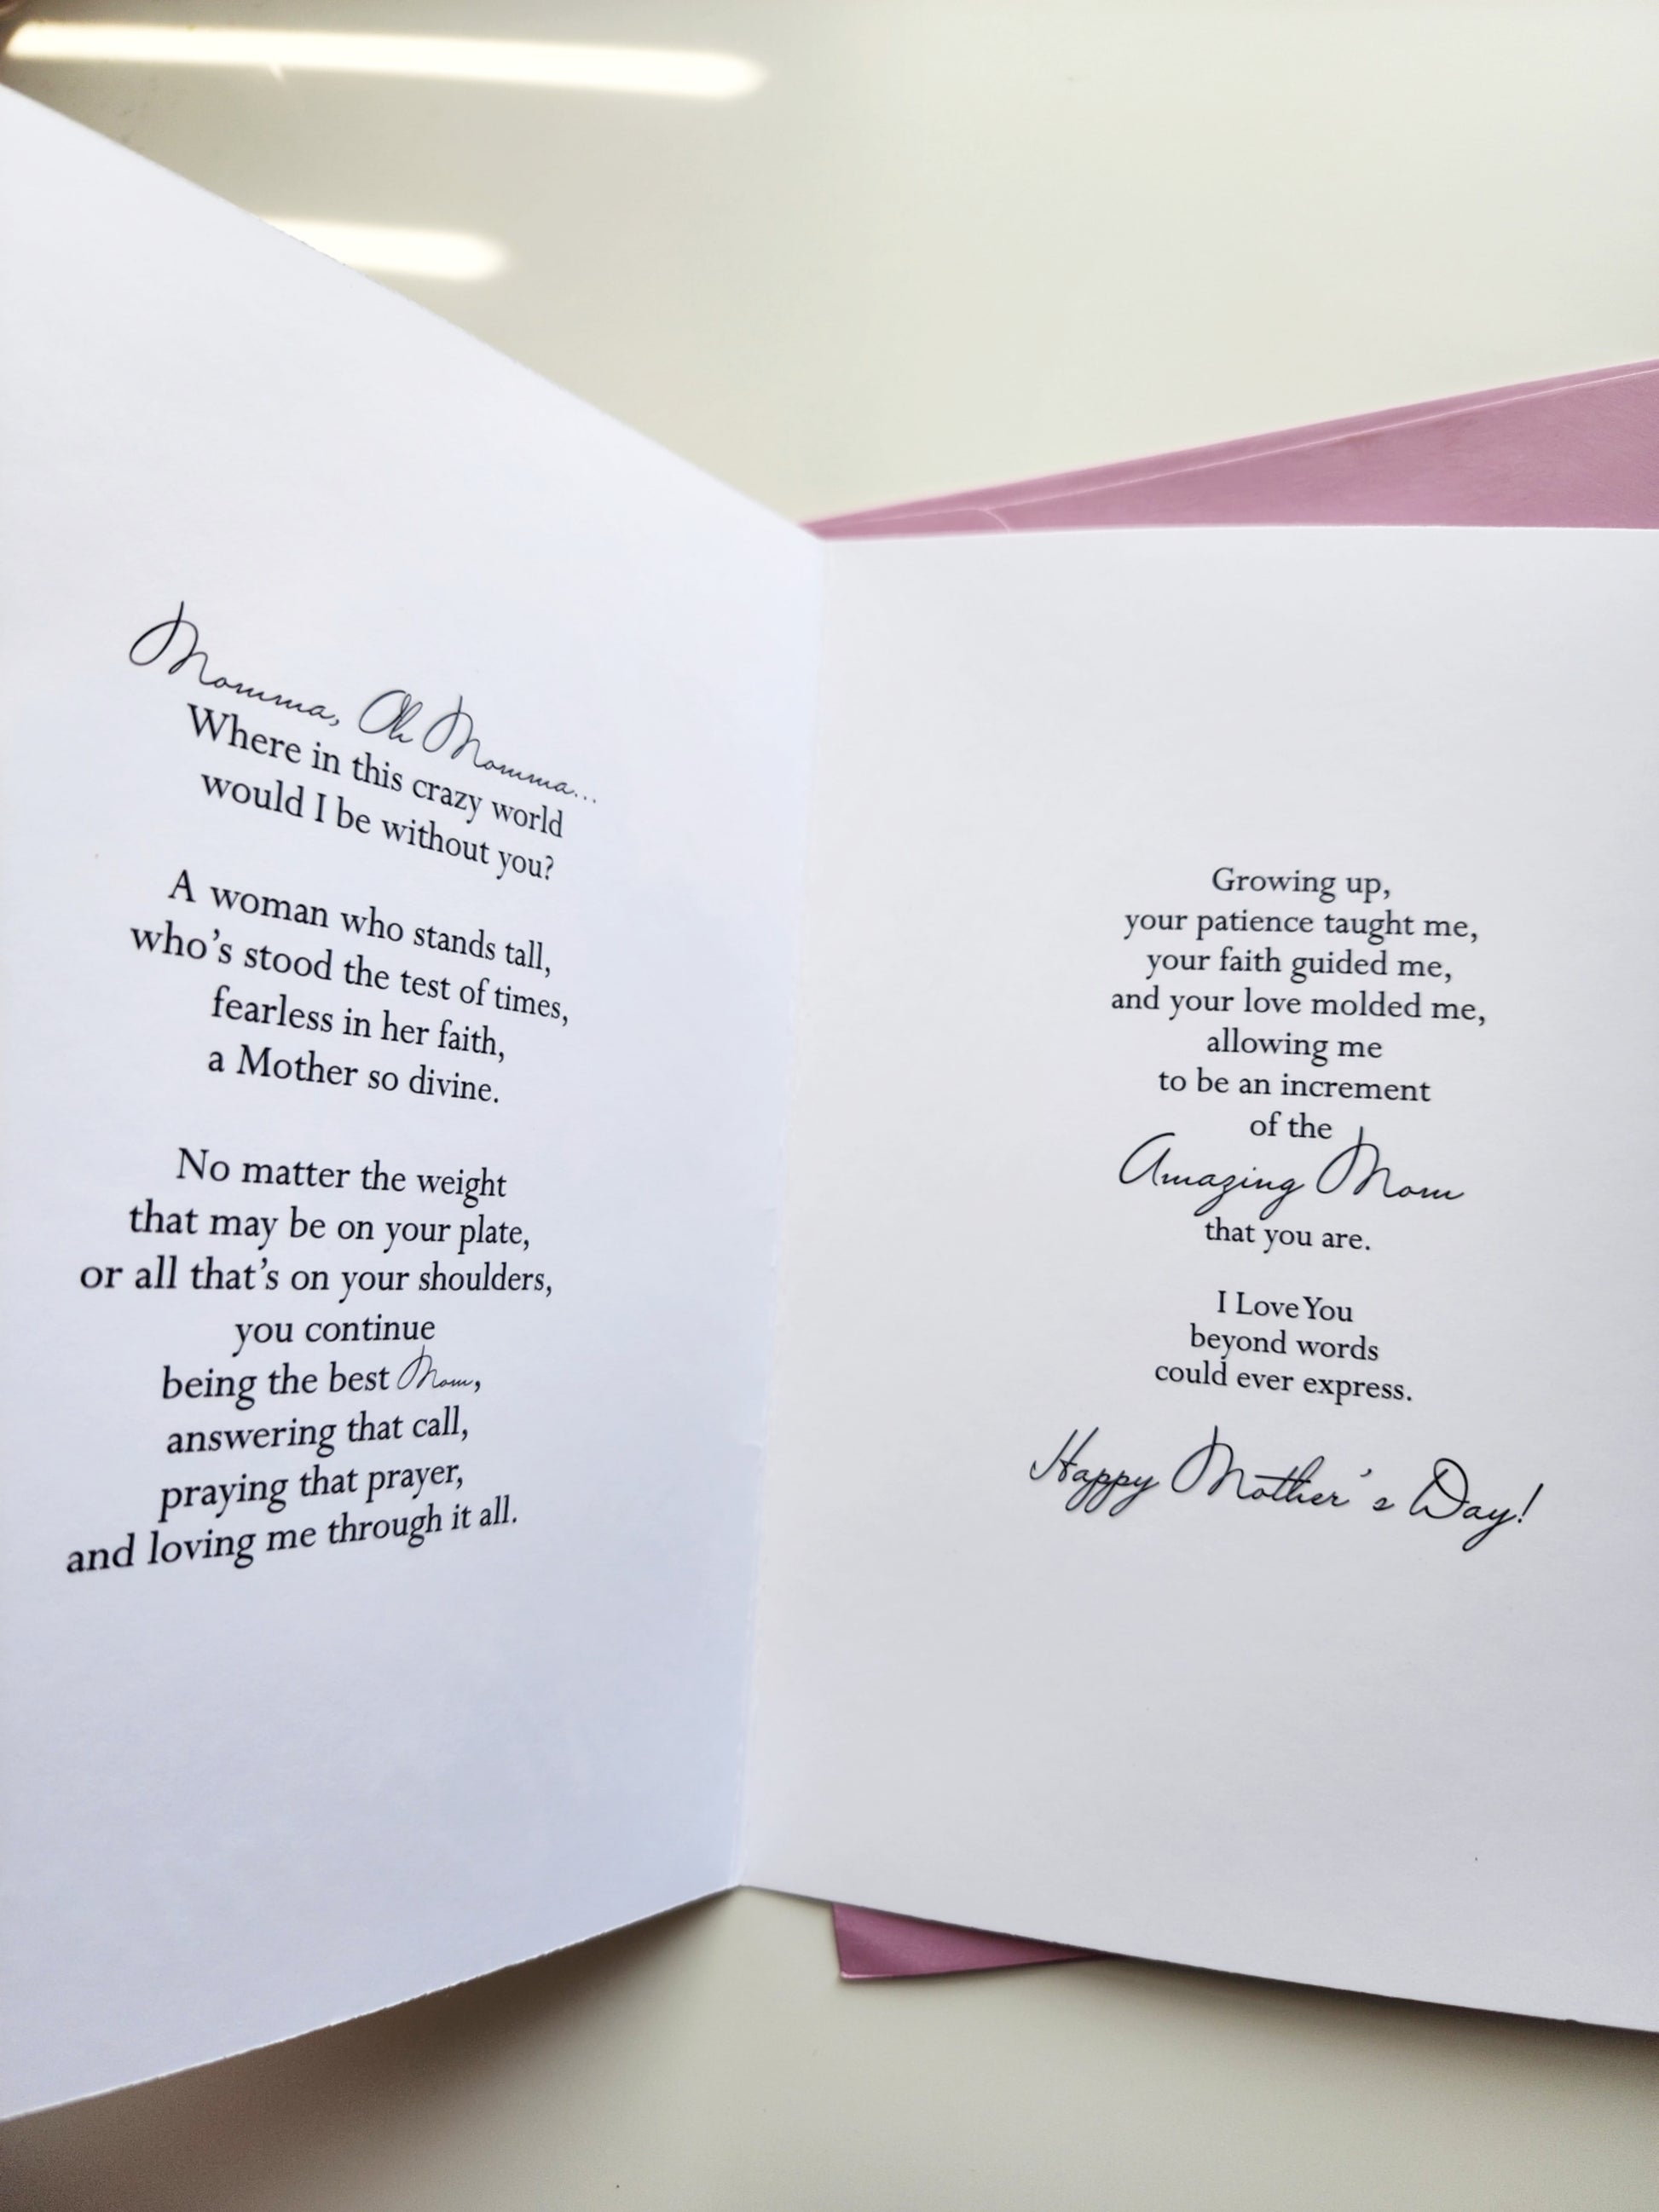 Momma, Oh Momma...
Where in this crazy world
would I be without you?
A woman who stands tall,
who's stood the test of times,
fearless in her faith,
a Mother so divine.
No matter the weight
that may be on your plate,
or all that's on your shoulders,
you continue
being the best Mom,
answering that call,
praying that prayer,
and loving me through it all.
Growing up,
your patience taught me,
your faith guided me,
and your love molded me,
allowing me
to be an increment
of the
Amazing Mom
that you are.
I Love You
beyond words
could ever express.
Happy Mother's Day!